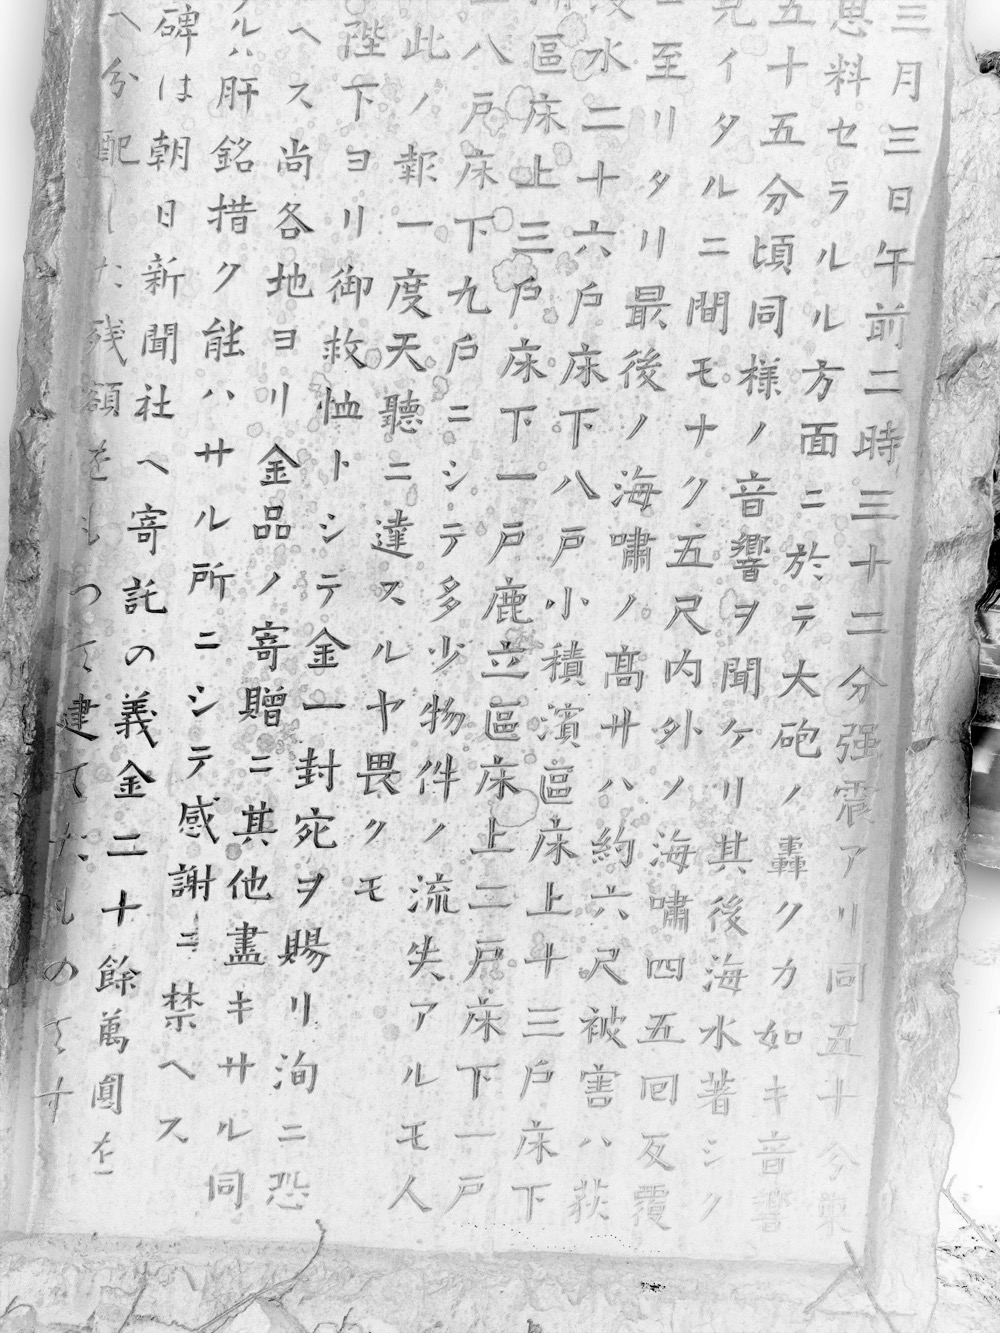 三月三日午前二時三十二分强震アリ同五十分東
思料セラルル方面ニ於テ大砲ノ轟クカ如キ音響
五十五分頃同様ノ音響ヲ聞ケリ其後海水著シク
見イタルニ間モナク五尺内外ノ海嘯四五回反覆
ニ至リタリ最後ノ海嘯ノ髙サハ約六尺被害ハ荻
水二十六戶床下八戸小積濱區床上十三戶床下
區床上三戶床下一戸鹿立區床上二戸床下一戸
八戸床下九戶ニシテ多少物件ノ流失アルモ人
此ノ報一度天聽ニ達スルヤ畏クモ
陛下ヨリ御救恤トシテ金一封宛ヲ賜リ洵ニ恐
ヘス尚各地ヨリ金品ノ寄贈ニ其他盡キサル同
ルハ肝銘措ク能ハサル所ニシテ感謝ニ禁ヘス
碑は朝日新聞社へ寄託の義金二十餘萬圓を
へ分配した残額をもつて建てたものです